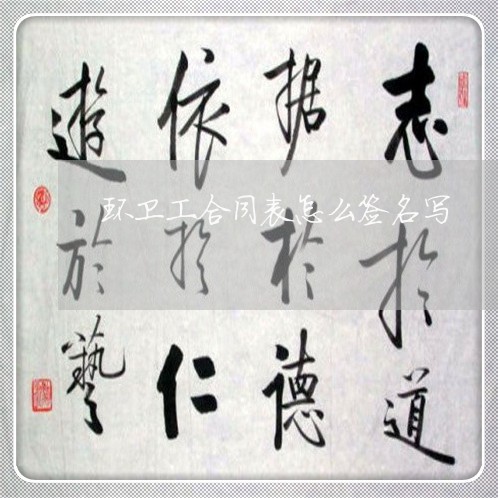 志於道
据於德
依於仁
遊於藝
环卫工合同表怎么签名写